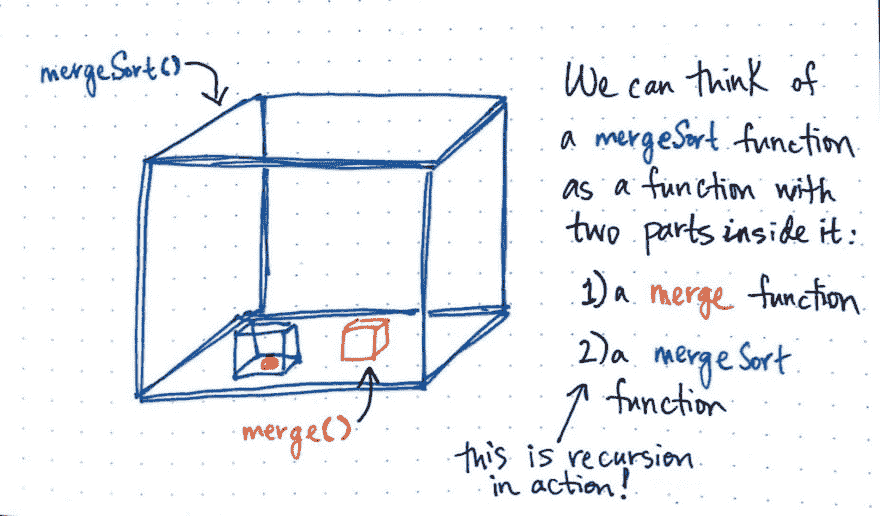 mergeSort()
We can think of
a mergeSort function
as a function with
two parts inside it:
1) a merge function
2) a mergeSort
function
merge()
this is recursion
in action!